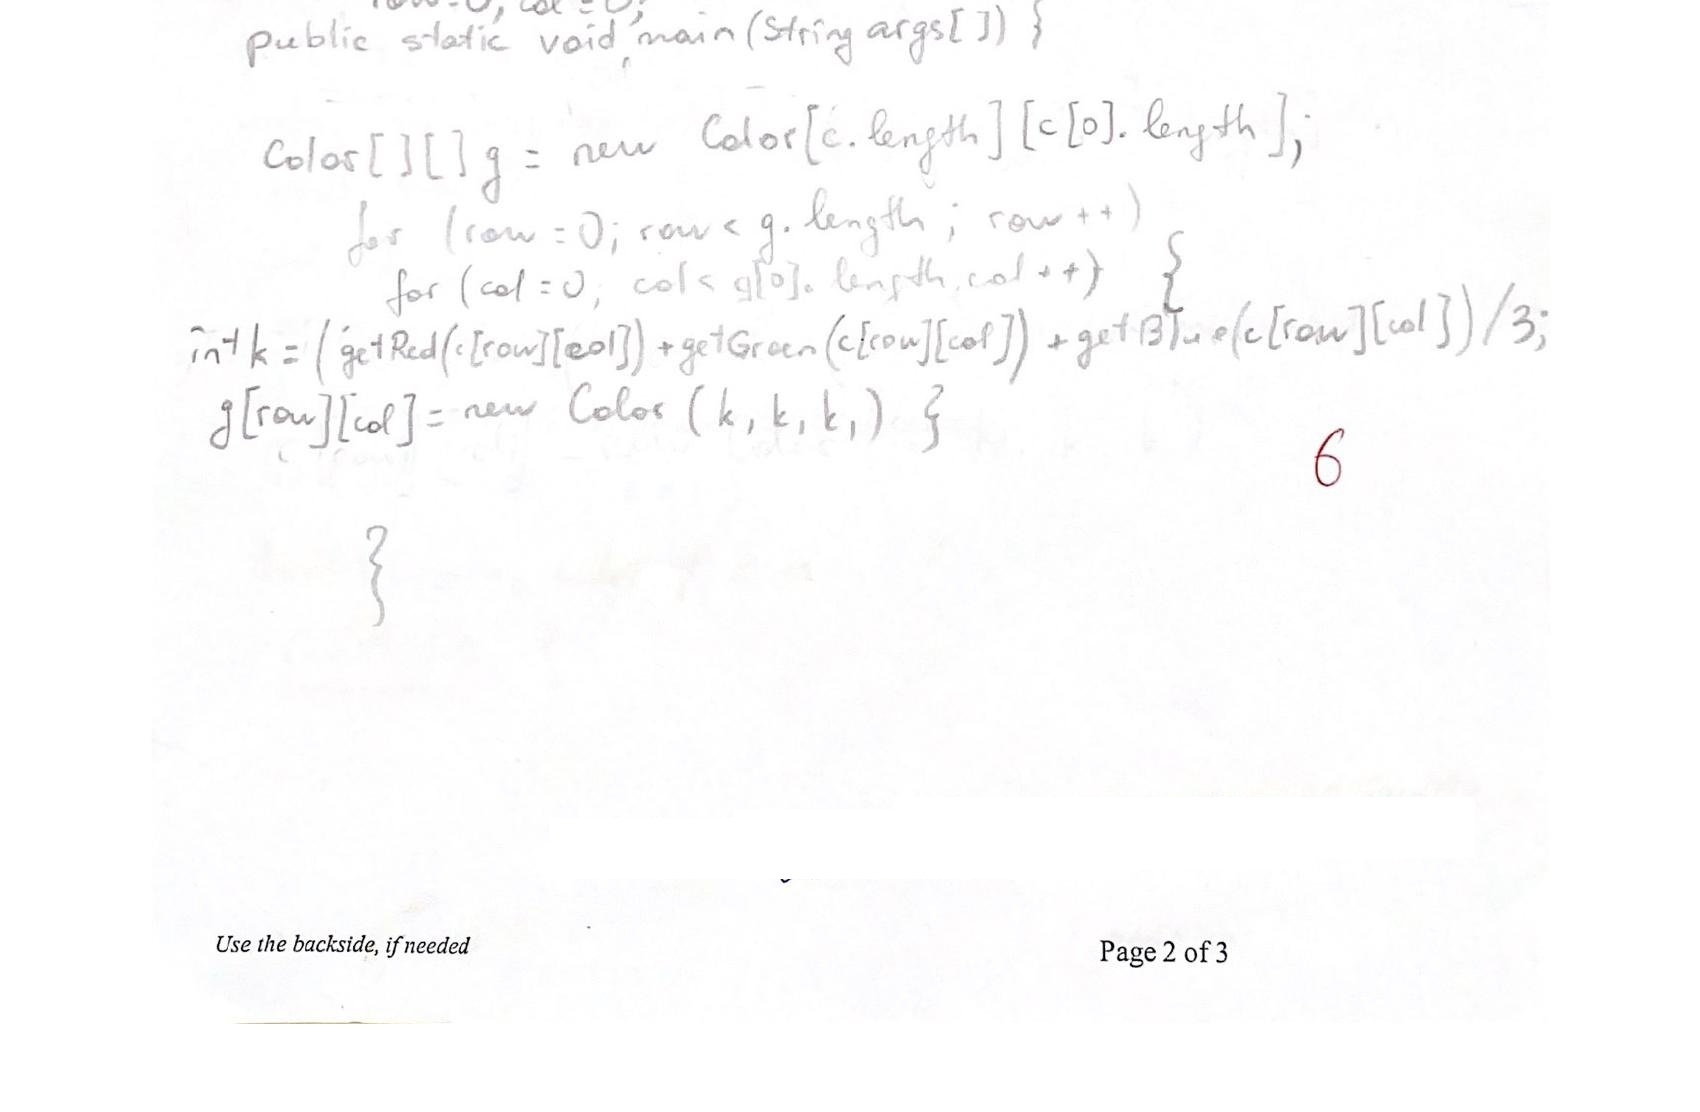 row=0, col=0;
public static void main(String args[ ]) }
Color[ ][ ] g = new Color[c.length][c[0].length];
for (row=0; row< g.length; row++)
for (col=0; col< g[0].length, col++) {
int k = (getRed(c[row][col]) + getGreen(c[row][col]) + getBlue(c[row][col]))/3;
g[row][col] = new Color (k, k, k,) }
6
}
Use the backside, if needed
Page 2 of 3